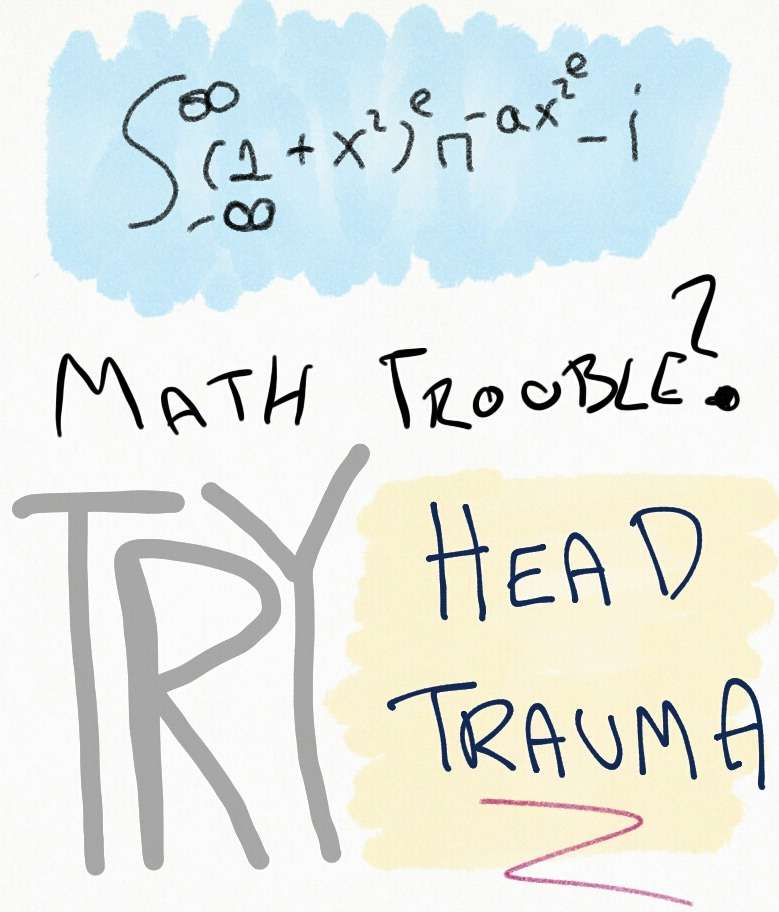 ∫_{-∞}^{∞} (1 + x²)^e π^{-ax^{2^e}} - i
MATH TROUBLE?
TRY
HEAD
TRAUMA